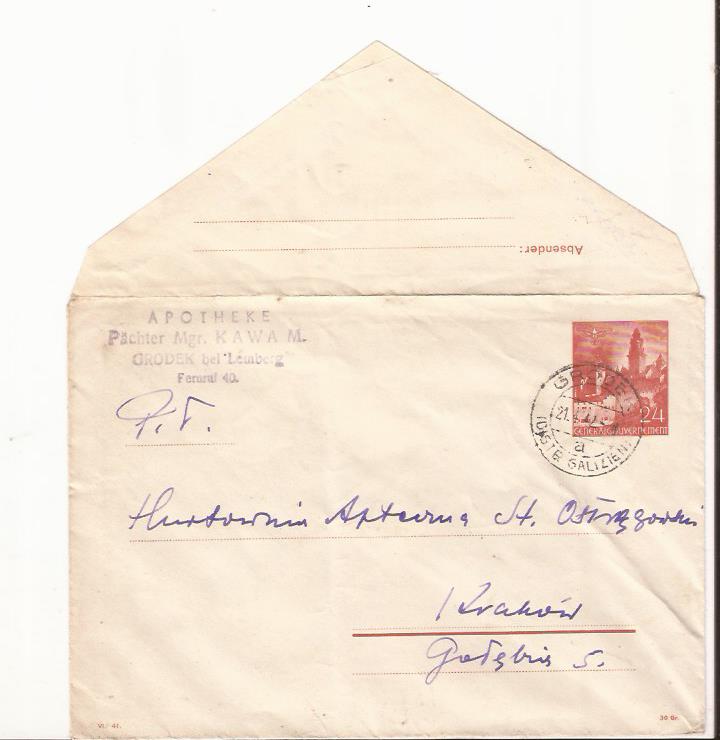 Absender:
APOTHEKE
Pächter Mgr. KAWA M.
GRODEK bei Lemberg
Fernruf 40.
24
GENERALGOUVERNEMENT
GRODEK
21.
a
(DISTR. GALIZIEN)
P.T.
Hurtownia Apteczna St. Ostrzęgowski
Kraków
Gołębia 5.
VI. 41.
30 Gr.